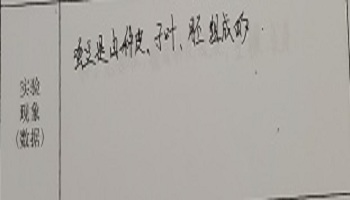 蚕豆是由种皮、子叶、胚组成的
实验
现象
(数据)